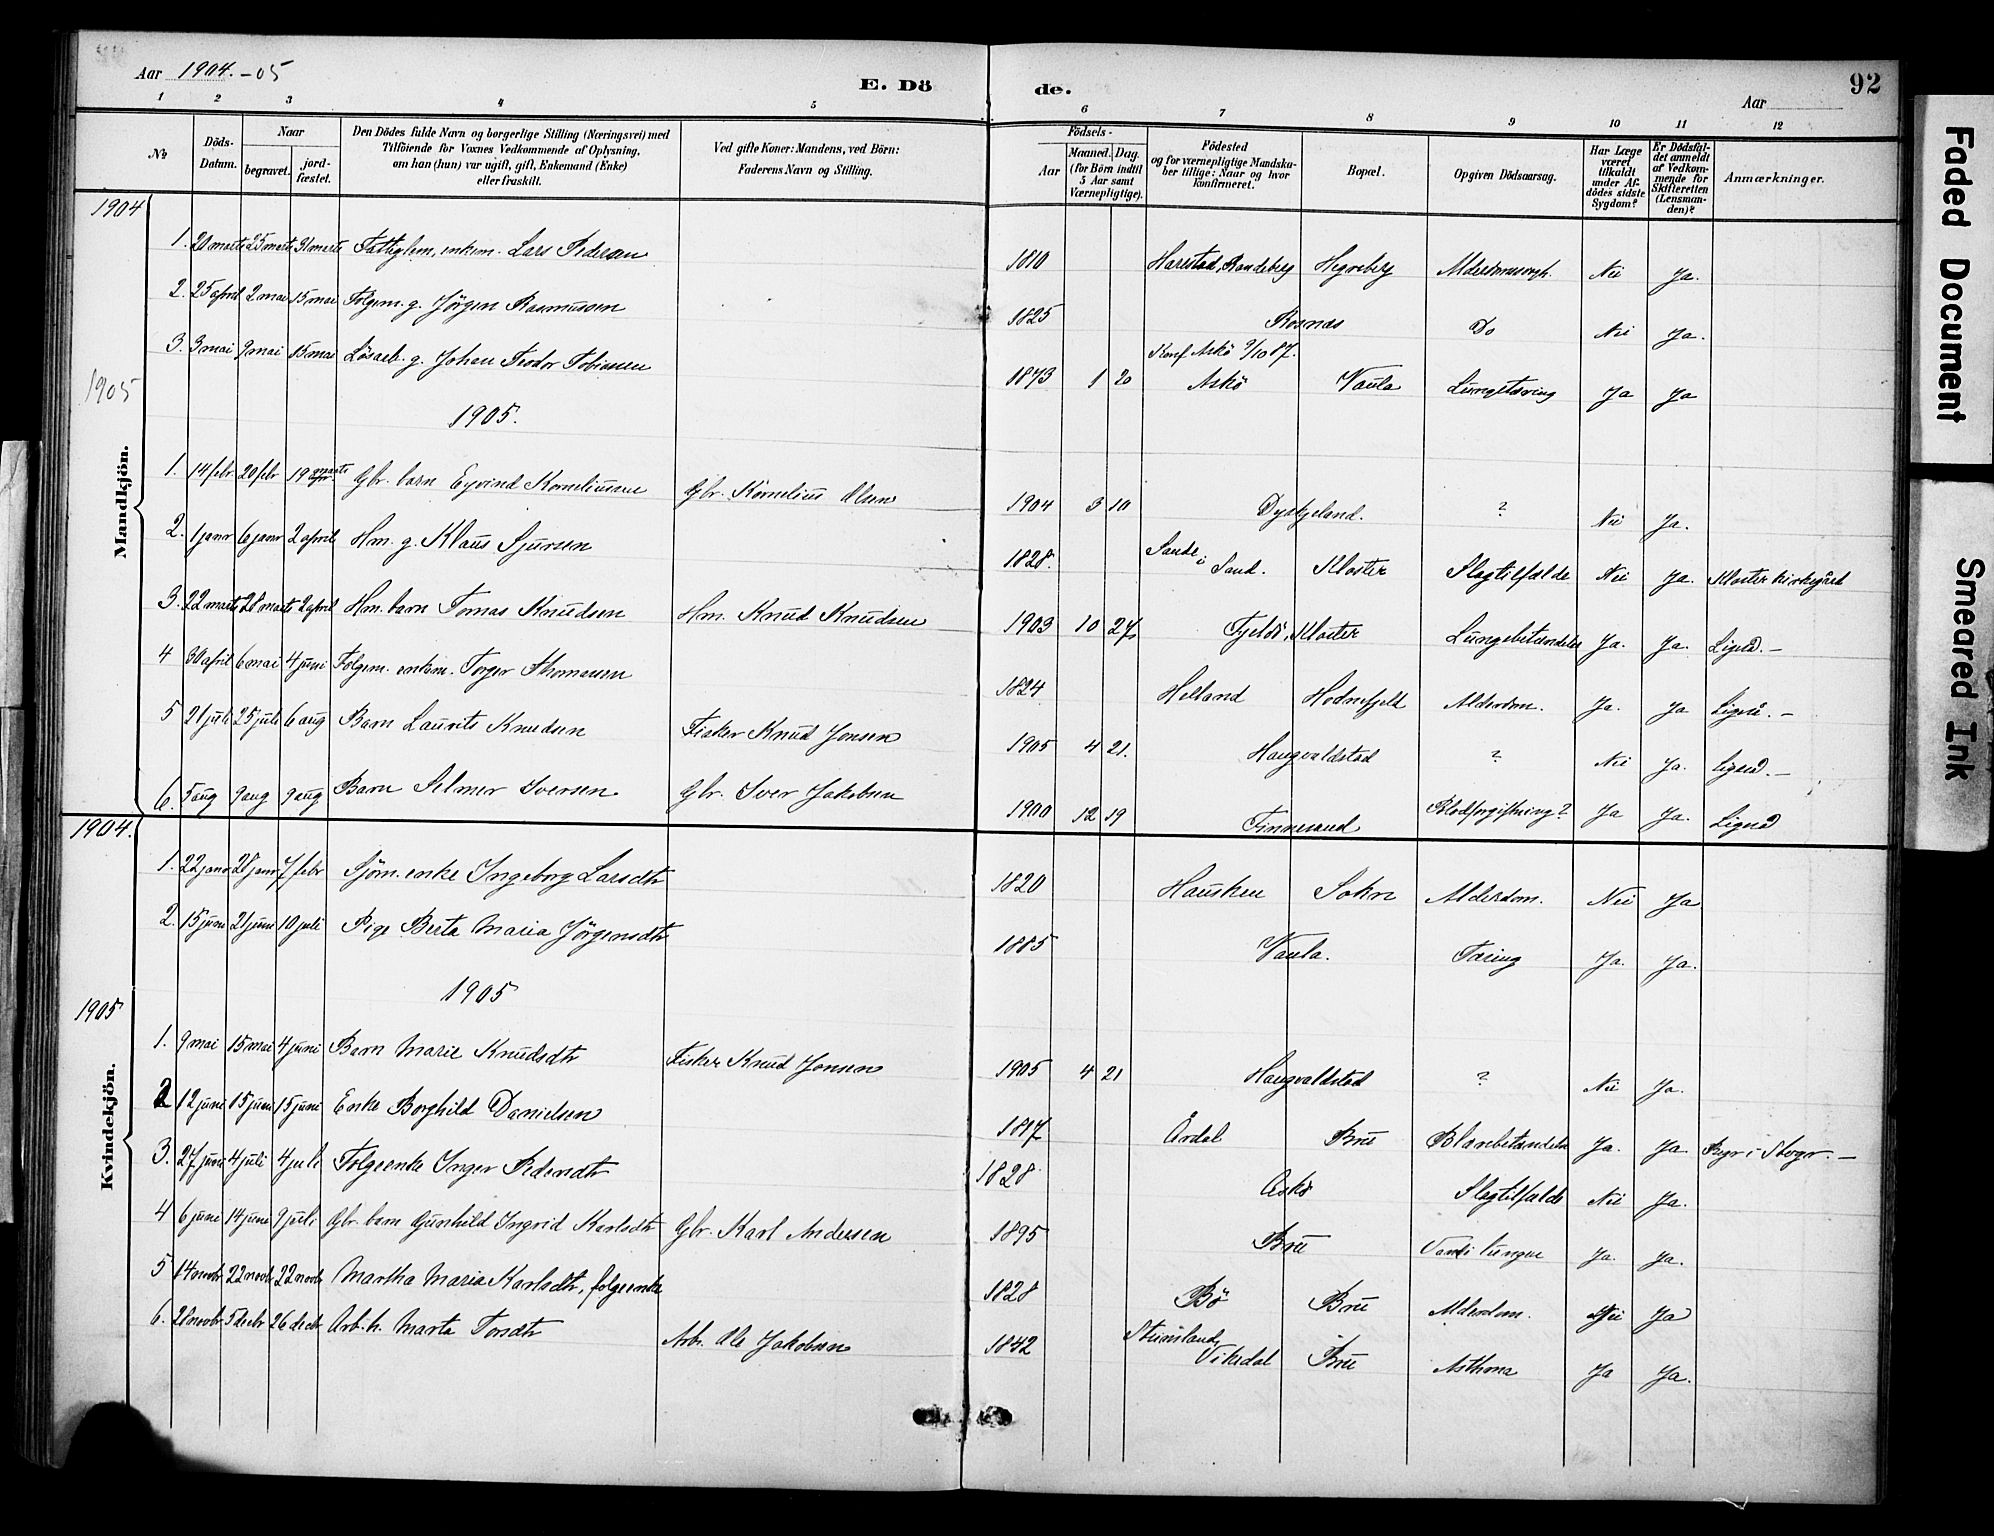 Aar 1904.-05
E. Döde.
Aar
92
1 2 3 4 5 6 7 8 9 10 11 12
№
Döds-Datum.
Naar
begravet.
jord-fæstet.
Den Dödes fulde Navn og borgerlige Stilling (Næringsvei) med
Tilföiende for Voxnes Vedkommende af Oplysning,
om han (hun) var ugift, gift, Enkemand (Enke)
eller fraskilt.
Ved gifte Koner: Mandens, ved Börn:
Faderens Navn og Stilling.
Födsels-
Aar
Maaned. Dag.
(for Börn indtil
5 Aar samt
Værnepligtige).
Födested
og for værnepligtige Mandska-
ber tillige: Naar og hvor
konfirmeret.
Bopæl.
Opgiven Dödsaarsag.
Har Læge
været
tilkaldt
under Af-
dödes sidste
Sygdom?
Er Dödsfal-
det anmeldt
af Vedkom-
mende for
Skifteretten
(Lensman-
den)?
Anmærkninger.
Mandkjön.
1904
1. 20 marts 25 marts 31 marts Fattiglem, enkem. Lars Pedersen 1810 Harestad, Randeberg Hegreberg Nei Ja.
2. 25 april 2 mai 15 mai Folgem. g. Jörgen Rasmussen 1825 Rosnas Do Nei Ja.
3. 3 mai 9 mai 15 mai Lösarb. g. Johan Teodor Tobiasen 1873 1 20 Konf. Askö 9/10 87. Askö Vaula Lungetæring Ja Ja
1905
1905.
1. 14 febr. 20 febr 19 marts Gbr. barn Eyvind Korneliussen Gbr. Kornelius Olsen 1904 3 10 Dysjeland. ? Nei Ja.
2. 1 janr 6 janr 2 april Hm. g. Klaus Sjursen 1828. Sande i Sand. Kloster Slagtilfælde Nei Ja. Kloster kirkegård
3. 22 marts 28 marts 2 april Hm. barn Tomas Knudsen Hm. Knud Knudsen 1903 10 27 Fjeldö, Kloster Lungebetændelse Ja. Ja. Ligeså.-
4 30 april 6 mai 4 juni Folgem. enkem. Torger Thomasen 1824 Helland Hodnefjeld Alderdom. Ja. Ja Ligeså.-
5 21 juli 25 juli 6 aug Barn Laurits Knudsen Fisker Knud Jonsen 1905 4 21. Haugvaldstad ? Nei Ja. Ligeså.-
6. 5 aug 9 aug 9 aug Barn Selmer Iversen Gbr. Iver Jakobsen 1900 12 19 Finnesand Blodforgiftning? Ja Ja. Ligeså
Kvindekjön.
1904.
1. 22 janr 28 janr 7 febr Sjöm. enke Ingeborg Larsdtr 1820 Hausken Sokn Alderdom. Nei Ja
2. 15 juni 21 juni 10 juli Pige Berta Maria Jörgensdtr 1885 Vaula. Tæring Ja. Ja.
1905
1905
1. 9 mai 15 mai 4 juni Barn Marie Knudsdtr Fisker Knud Jonsen 1905 4 21 Haugvaldstad ? Nei Ja.
2 12 juni 15 juni 15 juni Enke Borghild Danielsen 1817 Årdal Bru Blærebetændelse Ja. Ja. Begr. i Stvgr.-
3. 27 juni 4 juli 4 juli Folgeenke Inger Pedersdtr 1828 Askö Slagtilfælde Nei Ja.
4 6 juni 14 juni 9 juli Gbr. barn Gunhild Ingrid Karlsdtr Gbr. Karl Andersen 1895 Bru Vand i lunger Ja. Ja.
5 14 novbr 22 novbr 22 novbr Martha Maria Karlsdtr, folgeenke 1828 Bö Bru Alderdom. Nei Ja
6. 28 novbr 5 decbr 26 decbr Arb. h. Marta Torsdtr Arb. Ole Jakobsen 1842 Stumsland, Vikedal Bru Asthma Ja Ja.
Faded Document
Smeared Ink